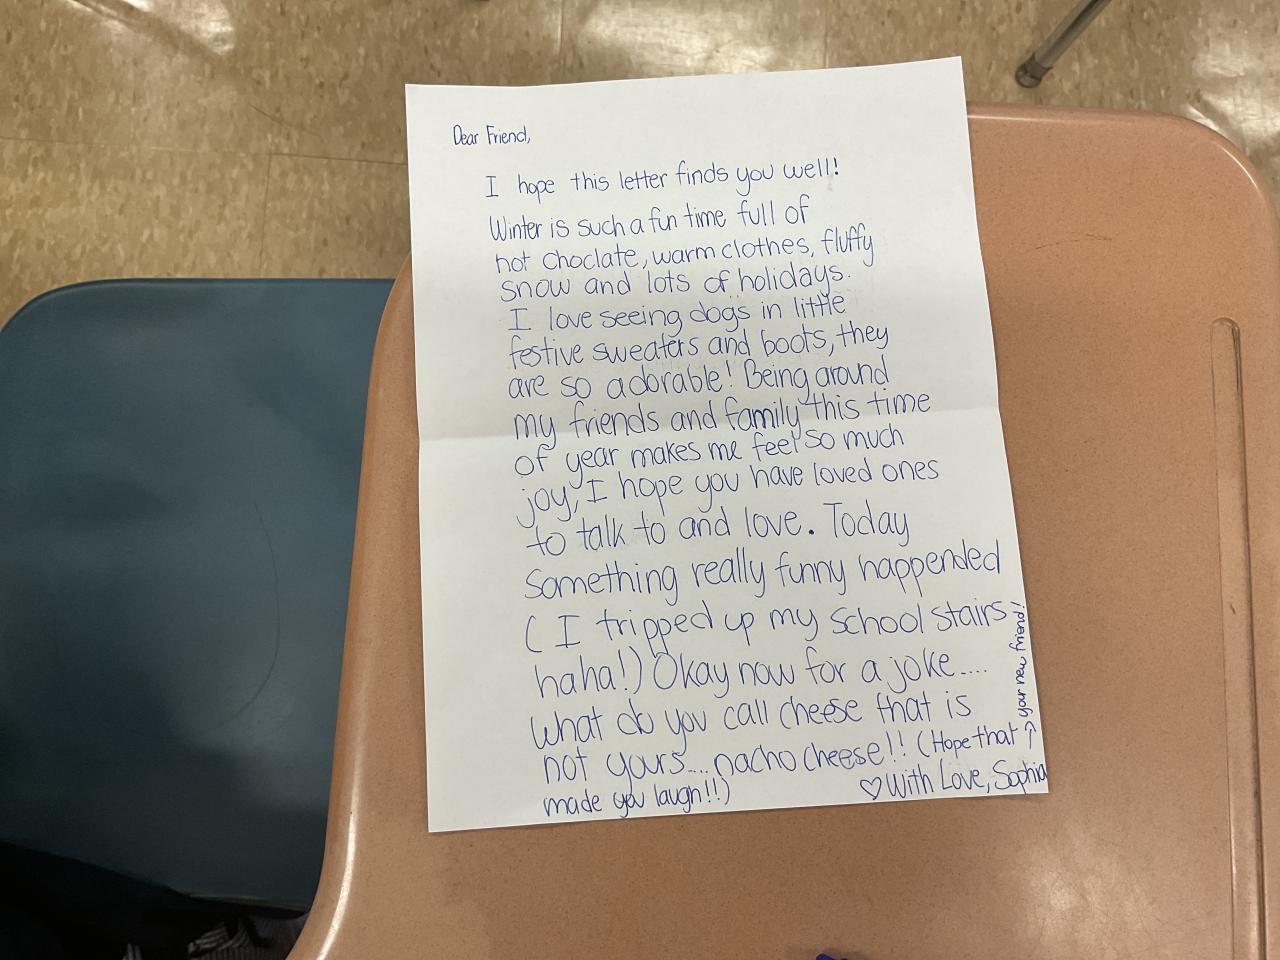 Dear Friend,
I hope this letter finds you well!
Winter is such a fun time full of
hot choclate, warm clothes, fluffy
snow and lots of holidays.
I love seeing dogs in little
festive sweaters and boots, they
are so adorable! Being around
my friends and family this time
of year makes me feel so much
joy, I hope you have loved ones
to talk to and love. Today
something really funny happended
( I tripped up my school stairs
haha!) Okay now for a joke....
What do you call cheese that is
not yours....nacho cheese!! (Hope that
made you laugh!!)
♡ With Love, Sophia
→ your new friend!